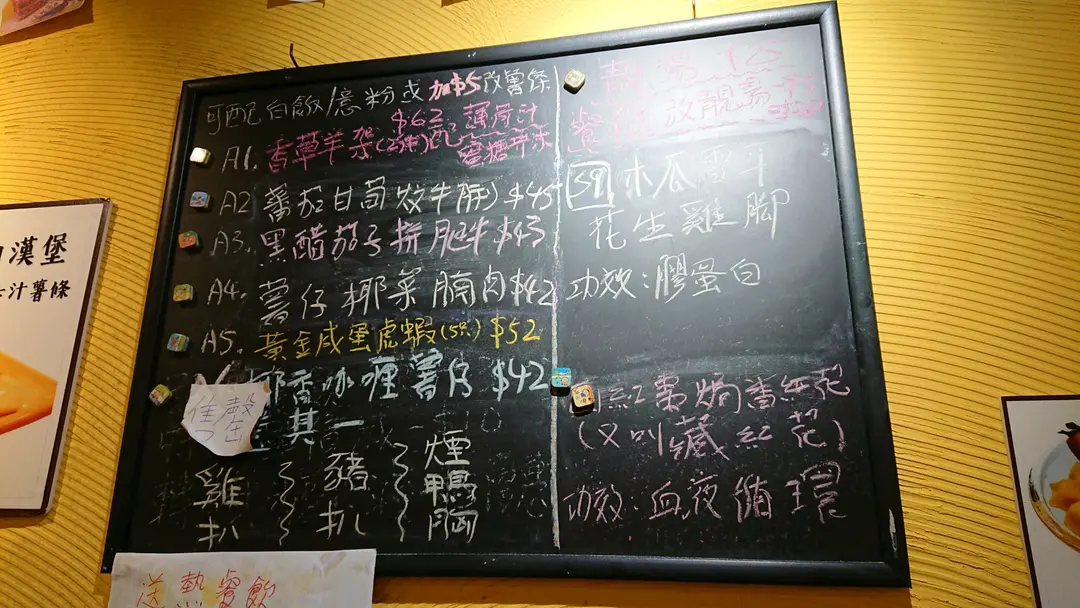 可配白飯/意粉或加$5改薯條
A1. 香草羊架(2件)配 $62 薄荷汁
蜜糖芥末
A2 蕃茄甘荀炆牛𦟌 $45
A3. 黑醋茄子拼肥牛 $43
A4. 薯仔椰菜腩肉 $42
A5. 黃金咸蛋虎蝦(5只) $52
椰香咖喱薯仔 $42
售罄
其一
雞扒
豬扒
煙鴨胸
木瓜雪耳
花生雞腳
功效:膠蛋白
紅棗焗番紅花
(又叫藏紅花)
功效:血液循環
漢堡
汁薯條
送熱餐飲